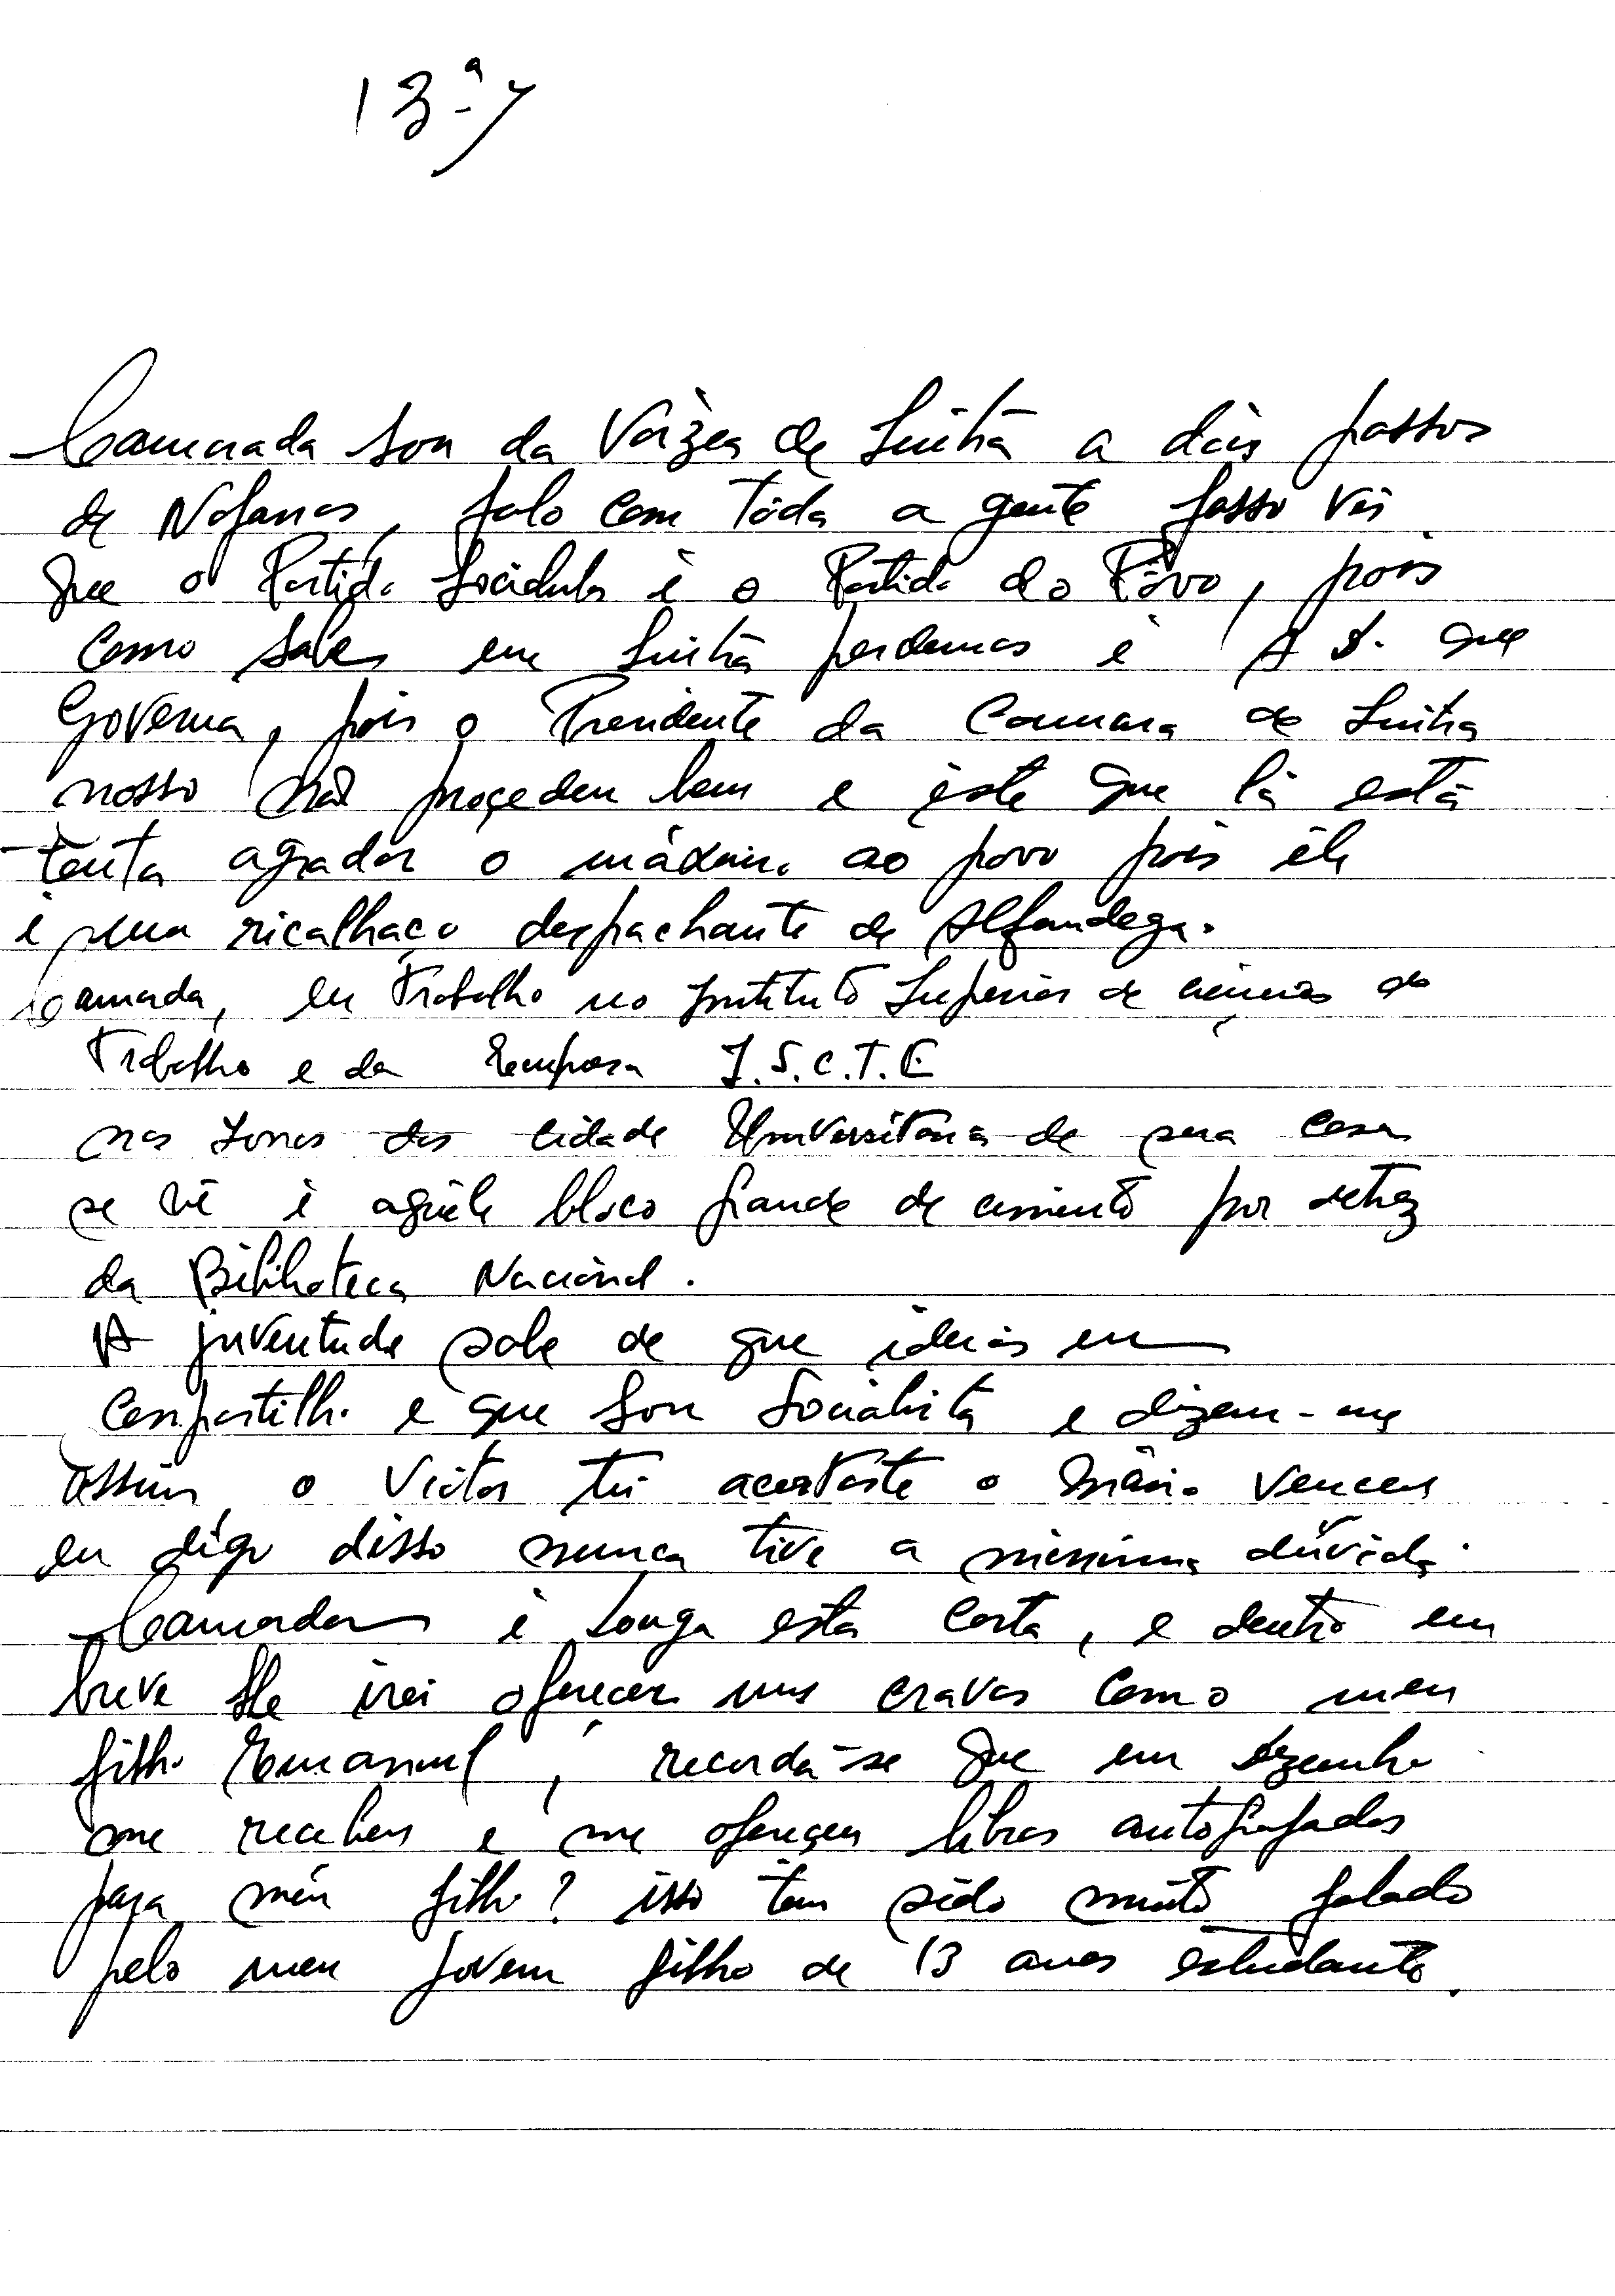 13ª
Camarada sou da Várzea de Sintra a dois passos
de Nafarros, falo com tôda a gente fasso ver
que o Partido Socialista é o Partido do Pôvo, pois
como sabe em Sintra perdemos é A D. que
Governa, pois o Presidente da Camara de Sintra
nosso não proçedeu bem e êste que lá está
tenta agradar o máximo ao povo pois êle
é um ricalhaço despachante de Alfandega.
Camarada, eu Trabalho no Instituto Superior de ciencias do
Trabalho e da Empresa I.S.C.T.E
nas zonas da cidade Universitária de sua casa
se vê é aquêle bloco grande de cimento por detraz
da Biblihoteca Nacional.
A juventude sabe de que ideias eu
compartilho e que sou Socialista e dizem-me
assim, o Victor tu acertaste o Mário venceu
eu digo disso nunca tive a minima dúvida.
Camarada é longa esta carta, e dentro em
breve lhe irei oferecer uns cravos com o meu
filho Emanuel, recorda-se que em Dezembro
me recebeu e me ofereçeu libros autografados
para meu filho? isso tem sido muito falado
pelo meu jovem filho de 13 anos estudante.